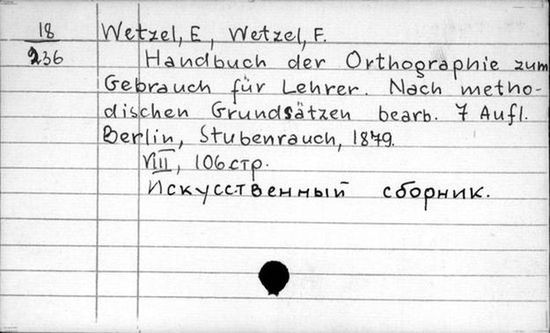 18 Wetzel, E, Wetzel, F.
236 Handbuch der Orthographie zum
Gebrauch für Lehrer. Nach metho-
dischen Grundsätzen bearb. 7 Aufl.
Berlin, Stubenrauch, 1879.
VIII, 106 стр.
Искусственный сборник.